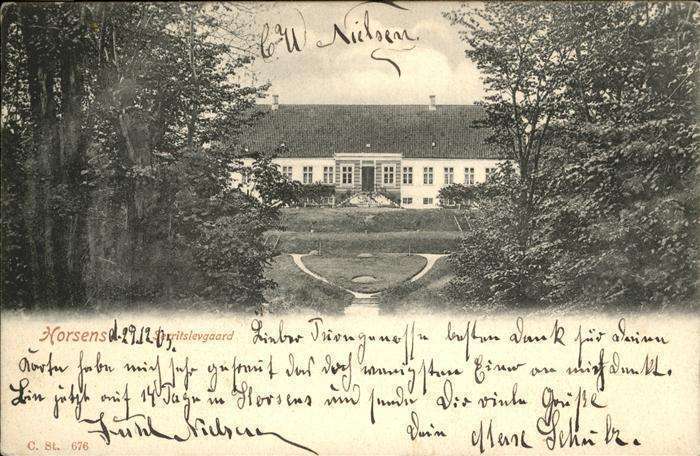 C W Nielsen
Horsens d. 29.12.03. Serritslevgaard Lieber Turngenosse besten Dank für Deine
Karte habe mich sehr gefreut das doch wenigsten Einer an mich denkt.
Bin jetzt auf 14 Tage in Horsens und sende Dir viele Grüße
Nielsen Dein Schulz.
C. St. 676